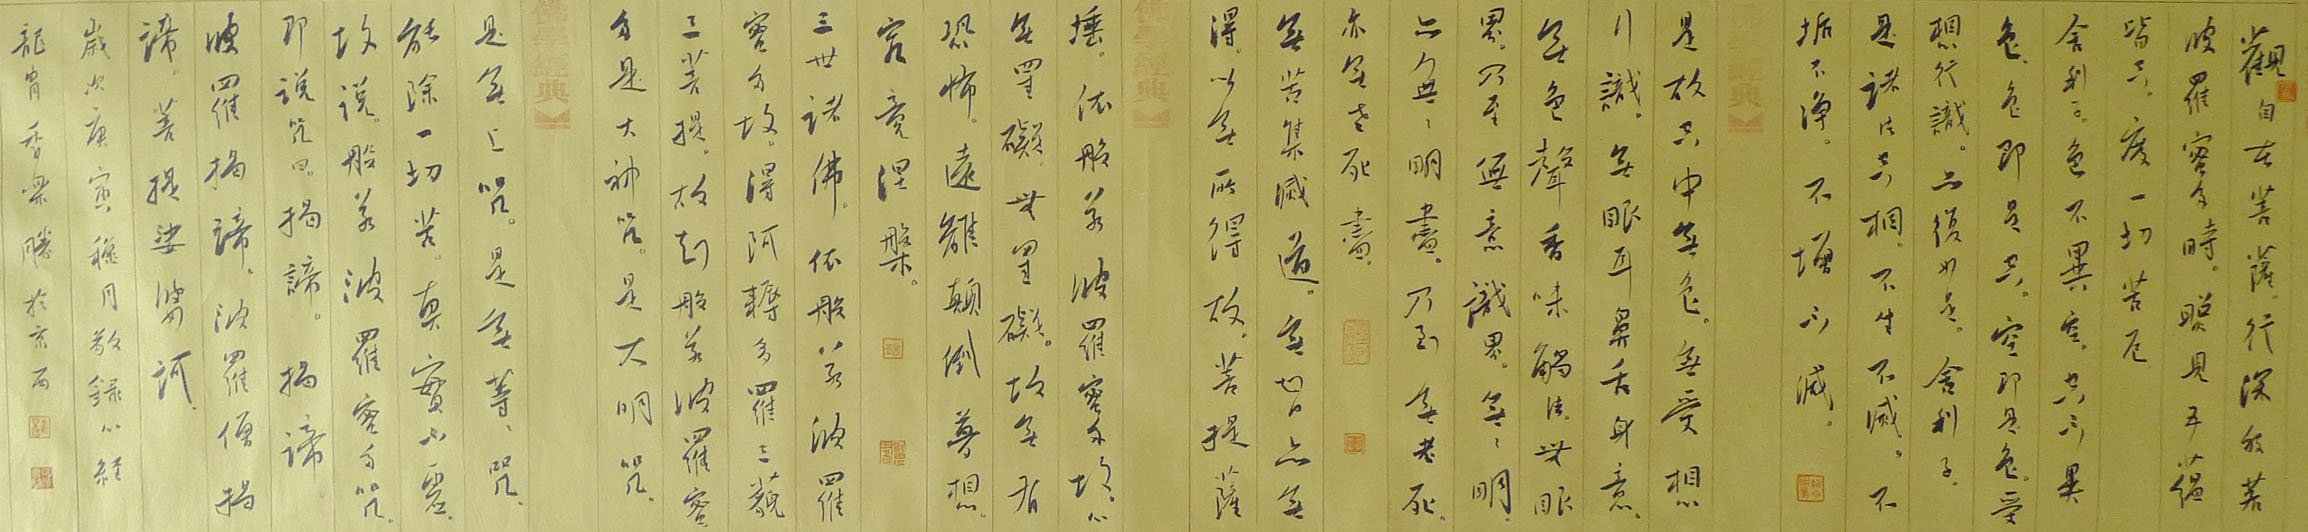 觀自在菩薩。行深般若
波羅蜜多時。照見五蘊
皆空。度一切苦厄
舍利子。色不異空。空不異
色。色即是空。空即是色。受
想行識。亦復如是。舍利子。
是諸法空相。不生不滅。不
垢不淨。不增不減。
是故空中無色。無受想
行識。無眼耳鼻舌身意。
無色聲香味觸法。無眼
界。乃至無意識界。無無明。
亦無無明盡。乃至無老死。
亦無老死盡。
無苦集滅道。無智亦無
得。以無所得故。菩提薩
埵。依般若波羅蜜多故。心
無罣礙。無罣礙。故無有
恐怖。遠離顛倒夢想。
究竟涅槃。
三世諸佛。依般若波羅
蜜多故。得阿耨多羅三藐
三菩提。故知般若波羅蜜
多是大神咒。是大明咒。
是無上咒。是無等、咒。
能除一切苦。真實不虛。
故說。般若波羅蜜多咒。
即說咒曰。揭諦。揭諦。
波羅揭諦。波羅僧揭
諦。菩提娑婆訶
歲次庚寅穐月敬錄心經
於京西
佛學經典
佛學經典